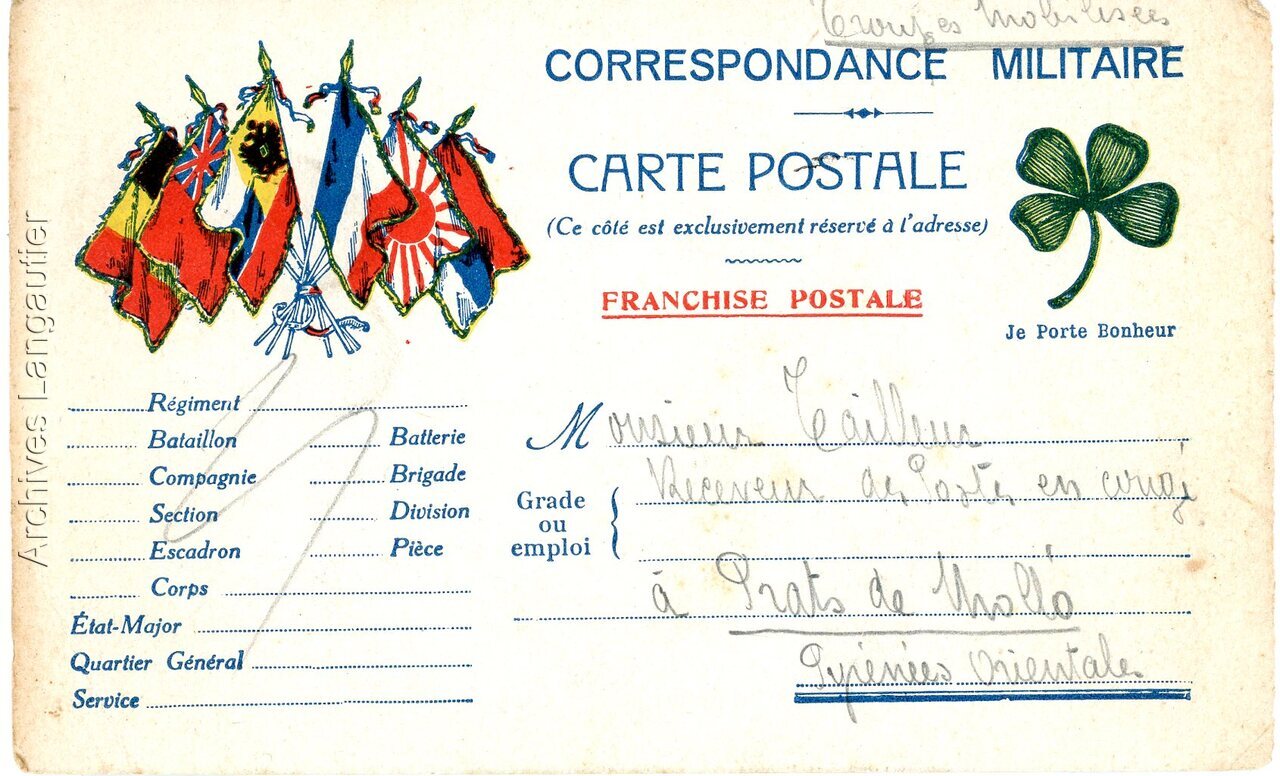 Troupes Mobilisées
CORRESPONDANCE MILITAIRE
CARTE POSTALE
(Ce côté est exclusivement réservé à l'adresse)
FRANCHISE POSTALE
Je Porte Bonheur
Archives Langautier
Régiment
Bataillon Batterie
Compagnie Brigade
Section Division
Escadron Pièce
Corps
État-Major
Quartier Général
Service
Monsieur Tailleur
Grade
ou
emploi
Receveur des Postes en congé
à Prats de Mollo
Pyrénées Orientales